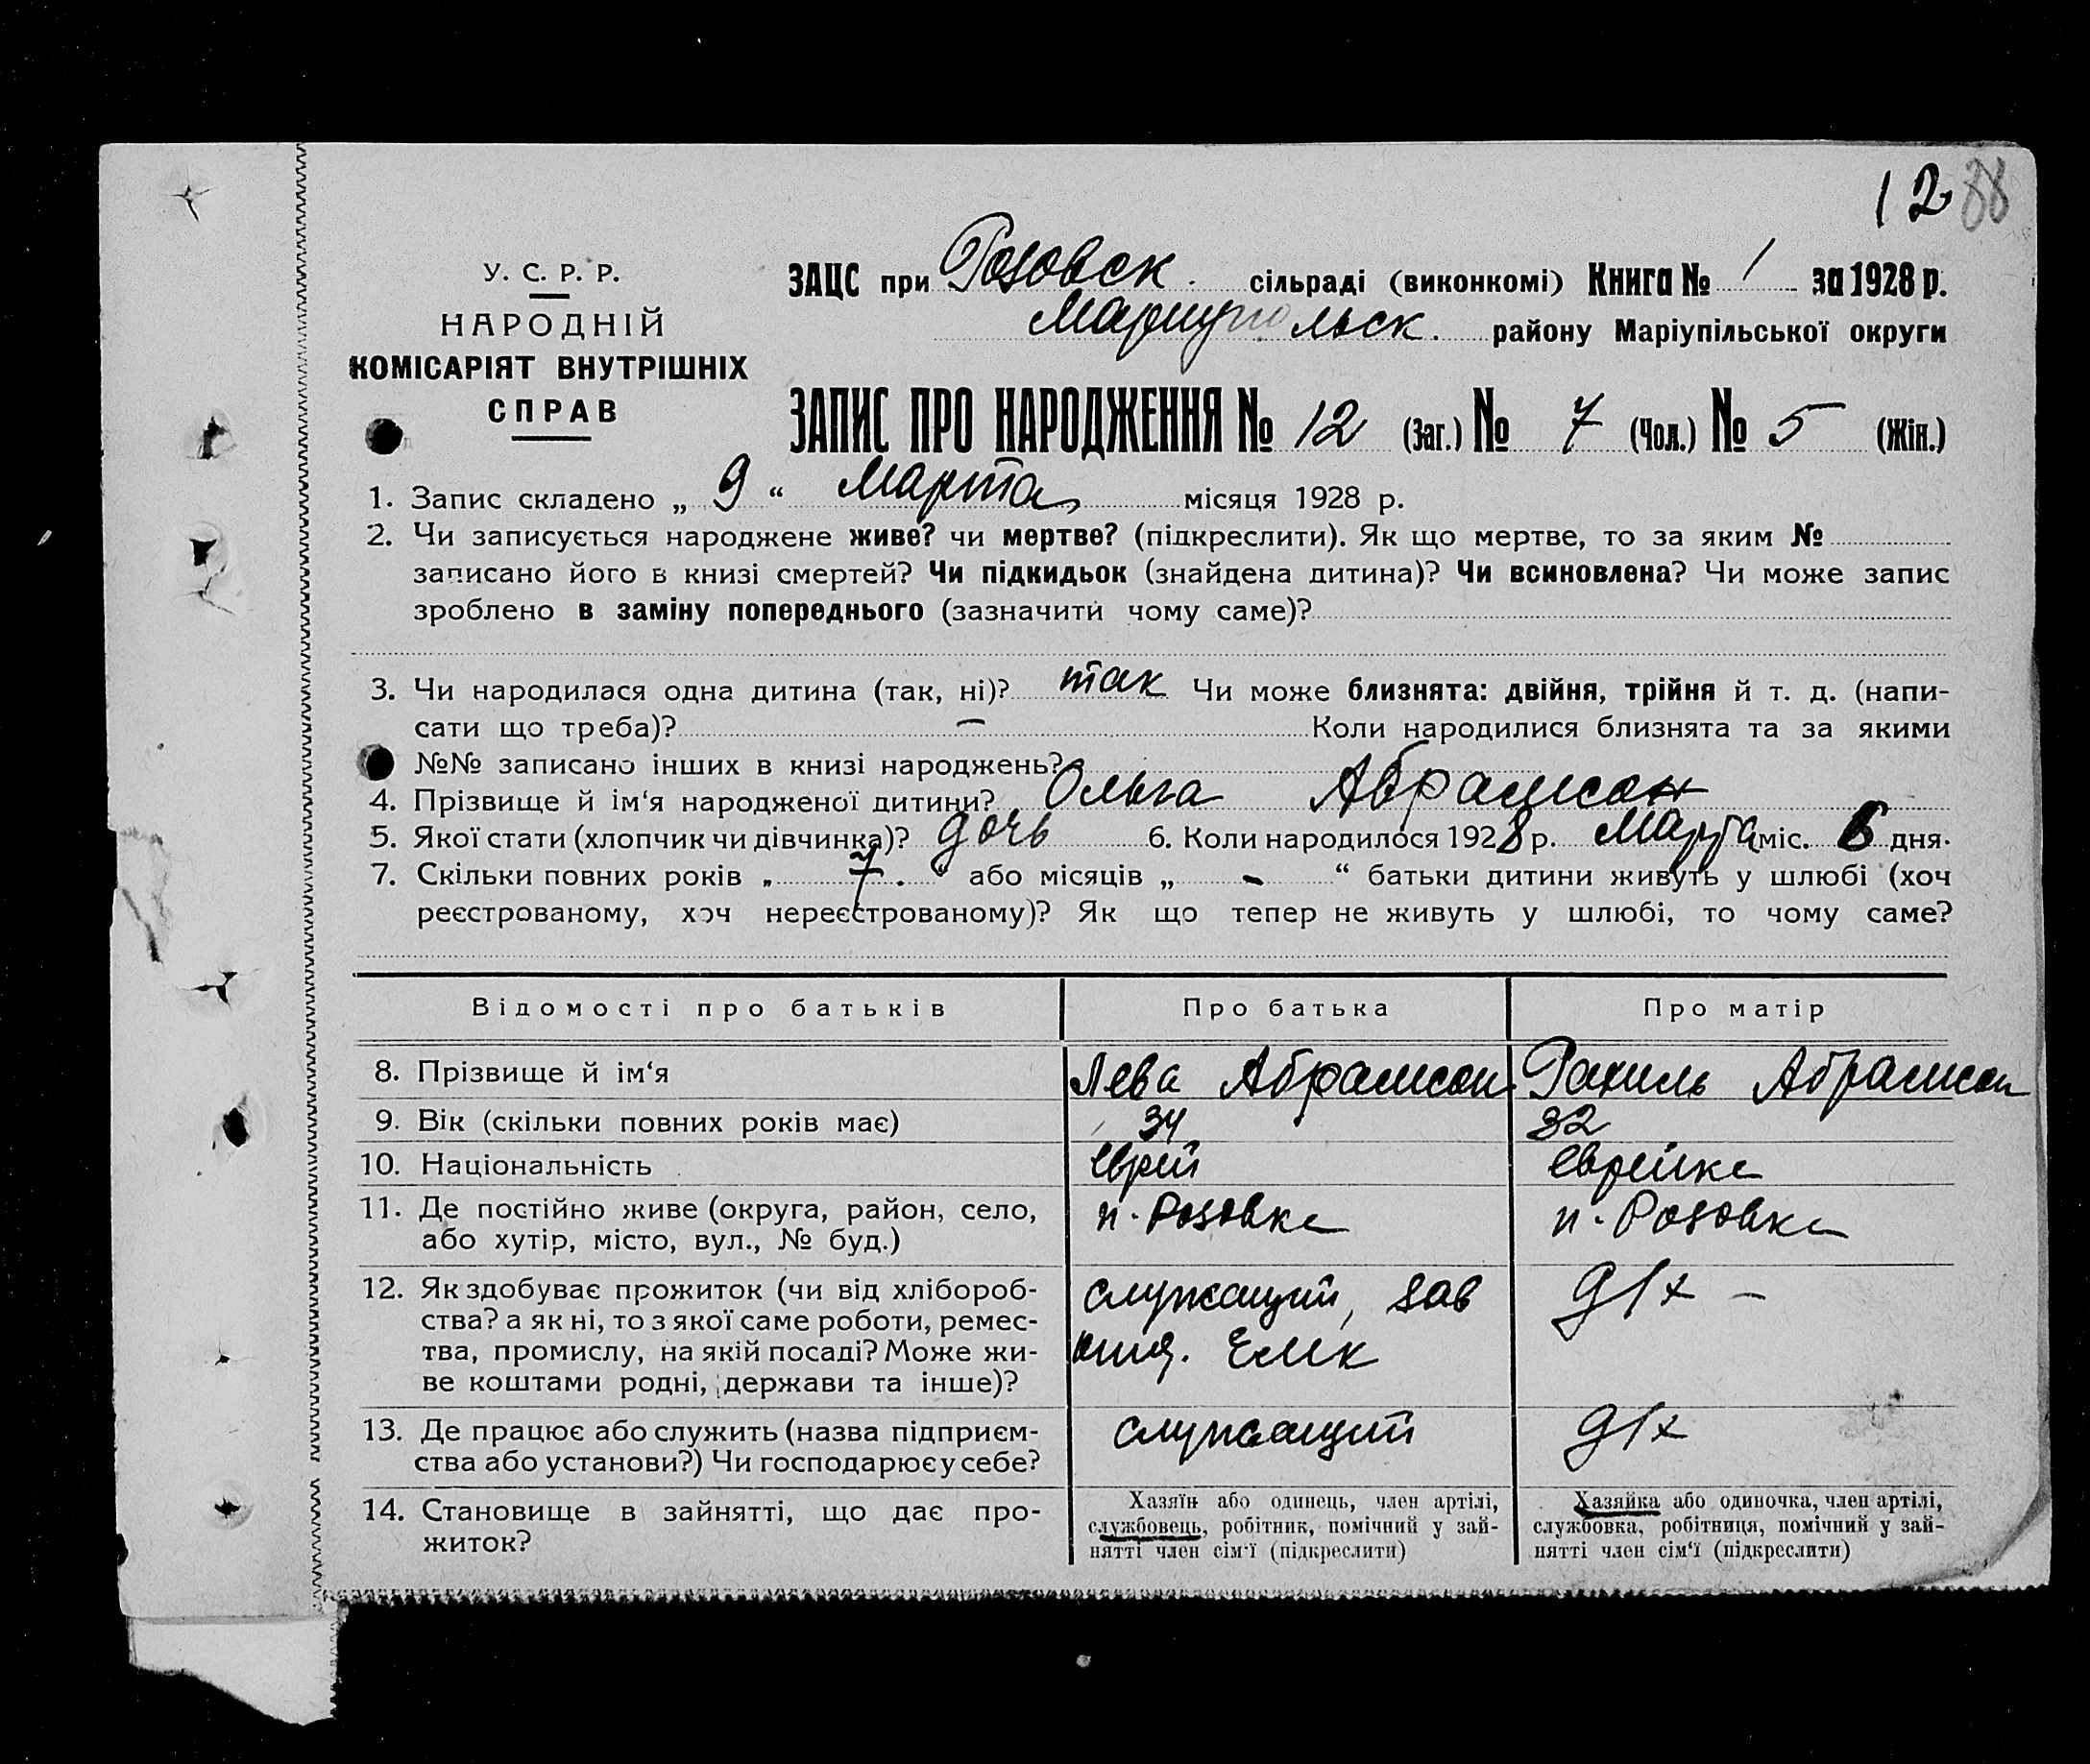 12 88
У. С. Р. Р.
НАРОДНІЙ
КОМІСАРІЯТ ВНУТРІШНІХ
СПРАВ
ЗАЦС при Розовск. сільраді (виконкомі) Книга № 1 за 1928 р.
Мариупольск. району Маріупільської округи
ЗАПИС ПРО НАРОДЖЕННЯ № 12 (Заг.) № 7 (Чол.) № 5 (Жін.)
1. Запис складено „ 9 “ Марта місяця 1928 р.
2. Чи записується народжене живе? чи мертве? (підкреслити). Як що мертве, то за яким №
записано його в книзі смертей? Чи підкидьок (знайдена дитина)? Чи всиновлена? Чи може запис
зроблено в заміну попереднього (зазначити чому саме)?
3. Чи народилася одна дитина (так, ні)? так Чи може близнята: двійня, трійня й т. д. (напи-
сати що треба)? — Коли народилися близнята та за якими
№№ записано інших в книзі народжень?
4. Прізвище й ім‘я народженої дитини? Ольга Абрамсон
5. Якої стати (хлопчик чи дівчинка)? дочь 6. Коли народилося 1928 р. Марта міс. 6 дня.
7. Скільки повних років „ 7. “ або місяців „ - “ батьки дитини живуть у шлюбі (хоч
реєстрованому, хоч нереєстрованому)? Як що тепер не живуть у шлюбі, то чому саме?
Відомості про батьків Про батька Про матір
8. Прізвище й ім‘я Лева Абрамсон Рахиль Абрамсон
9. Вік (скільки повних років має) 34 32
10. Національність еврей еврейка
11. Де постійно живе (округа, район, село,
або хутір, місто, вул., № буд.) п. Розовка п. Розовка
12. Як здобуває прожиток (чи від хлібороб-
ства? а як ні, то з якої саме роботи, ремес-
тва, промислу, на якій посаді? Може жи-
ве коштами родні, держави та інше)? служащий, зав
Елк д/х —
13. Де працює або служить (назва підприєм-
ства або установи?) Чи господарює у себе? служащий д/х
14. Становище в зайнятті, що дає про-
житок?
Хазяїн або одинець, член артілі,
службовець, робітник, помічний у зай-
нятті член сім‘ї (підкреслити)
Хазяйка або одиночка, член артілі,
службовка, робітниця, помічний у зай-
нятті член сім‘ї (підкреслити)